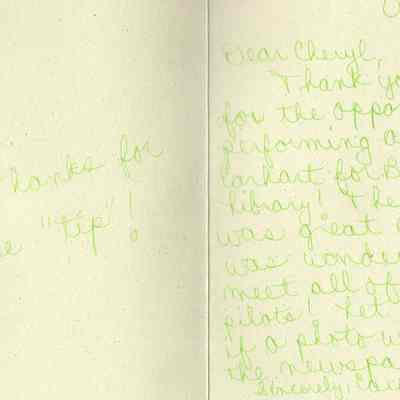 hanks for
e "tip"!
Dear Cheryl,
Thank yo
for the oppo
performing a
Earhart for B
library! The
was great
was wonde
meet all of
pilots! Let
if a photo w
the newspa
Sincerely,